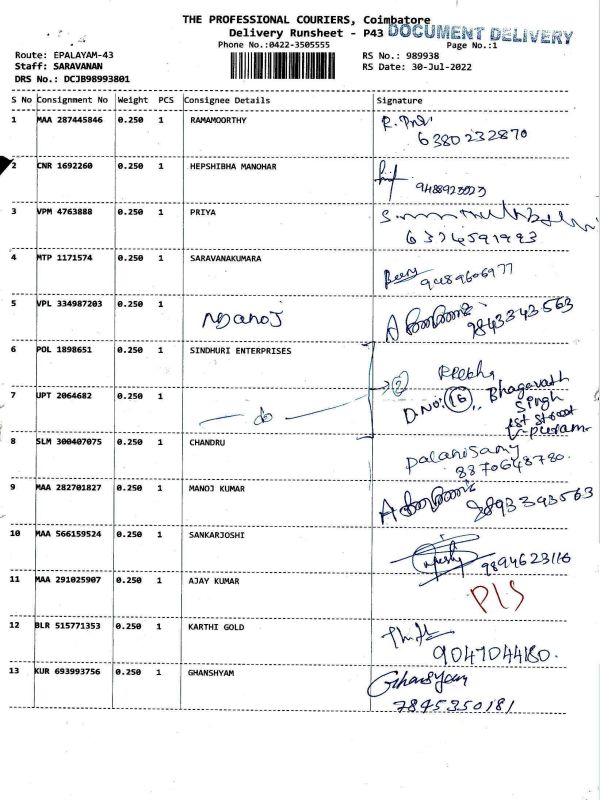 THE PROFESSIONAL COURIERS, Coimbatore
Delivery Runsheet - P43 DOCUMENT DELIVERY
Phone No.:0422-3505555 Page No.:1
Route: EPALAYAM-43 RS No.: 989938
Staff: SARAVANAN RS Date: 30-Jul-2022
DRS No.: DCJB98993801
S No Consignment No Weight PCS Consignee Details Signature
1 MAA 287445846 0.250 1 RAMAMOORTHY
6380232870
2 CNR 1692260 0.250 1 HEPSHIBHA MANOHAR
3 VPM 4763888 0.250 1 PRIYA
6374591993
4 MTP 1171574 0.250 1 SARAVANAKUMARA
9489606977
5 VPL 334987203 0.250 1 Manoj 9843343563
6 POL 1898651 0.250 1 SINDHURI ENTERPRISES
7 UPT 2064682 0.250 1 do 2 D.NO: 16, Bhagavath
Singh
1st Street
8 SLM 300407075 0.250 1 CHANDRU Palanisamy
8870648780.
9 MAA 282701827 0.250 1 MANOJ KUMAR
10 MAA 566159524 0.250 1 SANKARJOSHI 9894623116
11 MAA 291025907 0.250 1 AJAY KUMAR PLS
12 BLR 515771353 0.250 1 KARTHI GOLD
9047044180.
13 KUR 693993756 0.250 1 GHANSHYAM Ghansyam
7845350181